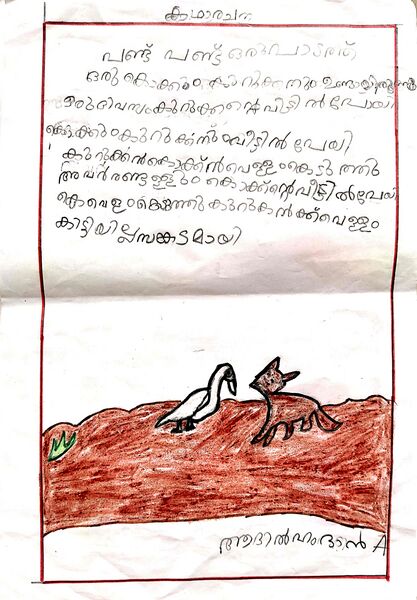 കഥാരചന
പണ്ട് പണ്ട് ഒരു
ഒരു കൊക്കും കുറുക്കനും ഉണ്ടായിരുന്നു
ഒരു ദിവസം കുറുക്കന്റെ വീട്ടിൽ പോയി
കൊക്കും കുറുക്കനും വീട്ടിൽ പേയി
കുറുക്കൻ കൊക്കിന് വെള്ളം കൊടുത്തു
അവർ രണ്ടാളും കൊക്കിന്റെ വീട്ടിൽ പേയി
കുറുകൻക്ക് വെള്ളം
കിട്ടിയില്ല സങ്കടമായി
ആദിൽ ഹംദാൻ A